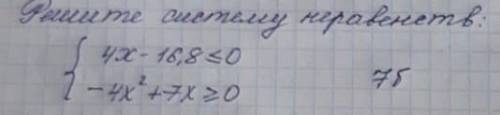 Решите систему неравенств:
4x - 16,8 ≤ 0
-4x² + 7x ≥ 0
7б